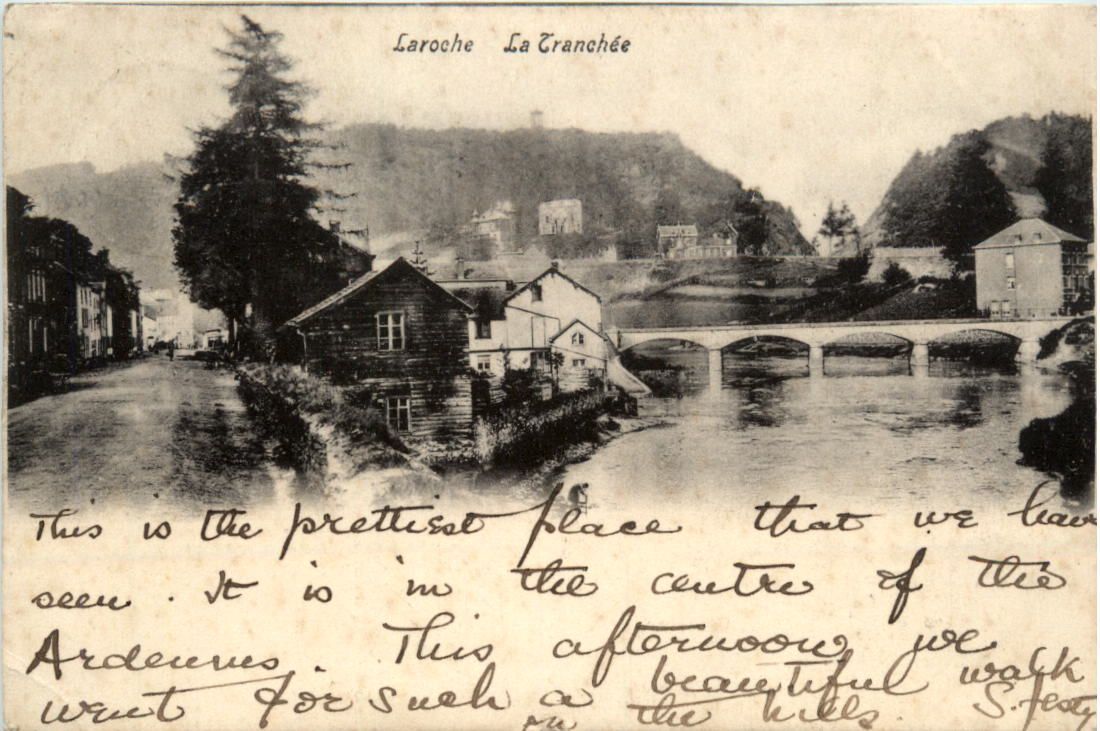 Laroche La Tranchée
This is the prettiest place that we have
seen. It is in the centre of the
Ardennes. This afternoon we
went for such a beautiful walk
in the hills. S.